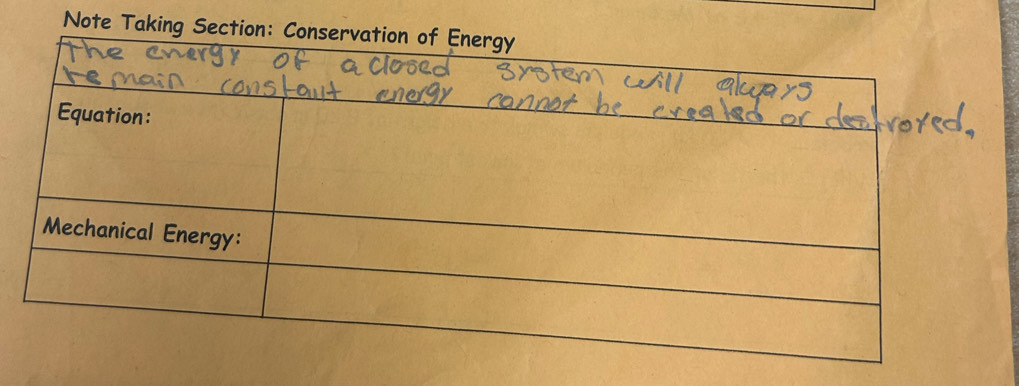 Note Taking Section: Conservation of Energy
The energy of a closed system will always
remain constant energy cannot be created or destroyed.
Equation:
Mechanical Energy: